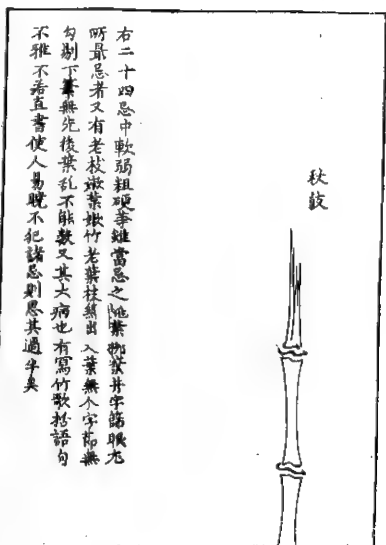 秋鼓
右二十四忌中軟弱粗硬筆雖當忌之桃葉柳葉井字節眼尤
所最忌者又有老枝嫩葉嫩竹老葉枝無出入葉無个字節無
勾剔下筆無先後葉乱不能數又其大病也有寫竹歌括語句
不雅不若直書使人易曉不犯諸忌則思其過半矣